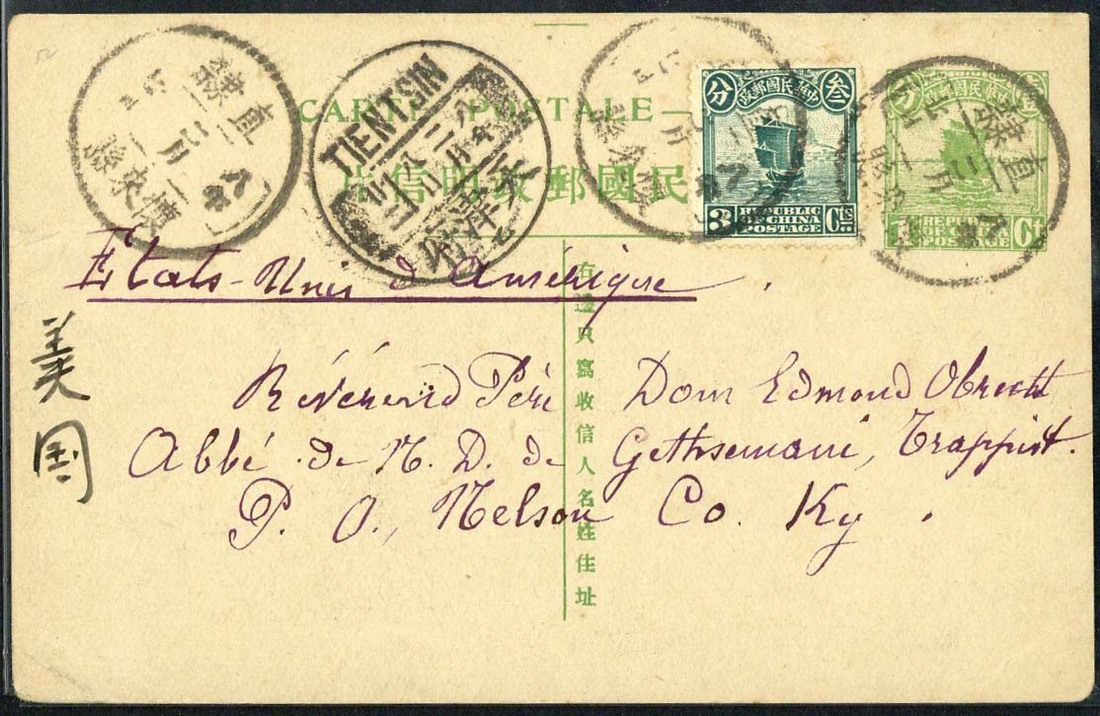 CARTE POSTALE
民國郵政明信片
中華民國郵政
叁 分
3 REPUBLIC OF CHINA POSTAGE Cts
中華民國郵政
REPUBLIC OF CHINA POSTAGE Ct
直隸
八年
懷來縣
TIENTSIN
直隸
États-Unis d'Amérique.
美国
Révérend Père Dom Edmond Obrecht
Abbé de N. D. de Gethsemani, Trappist.
P. O., Nelson Co. Ky.
右邊只寫收信人名姓住址